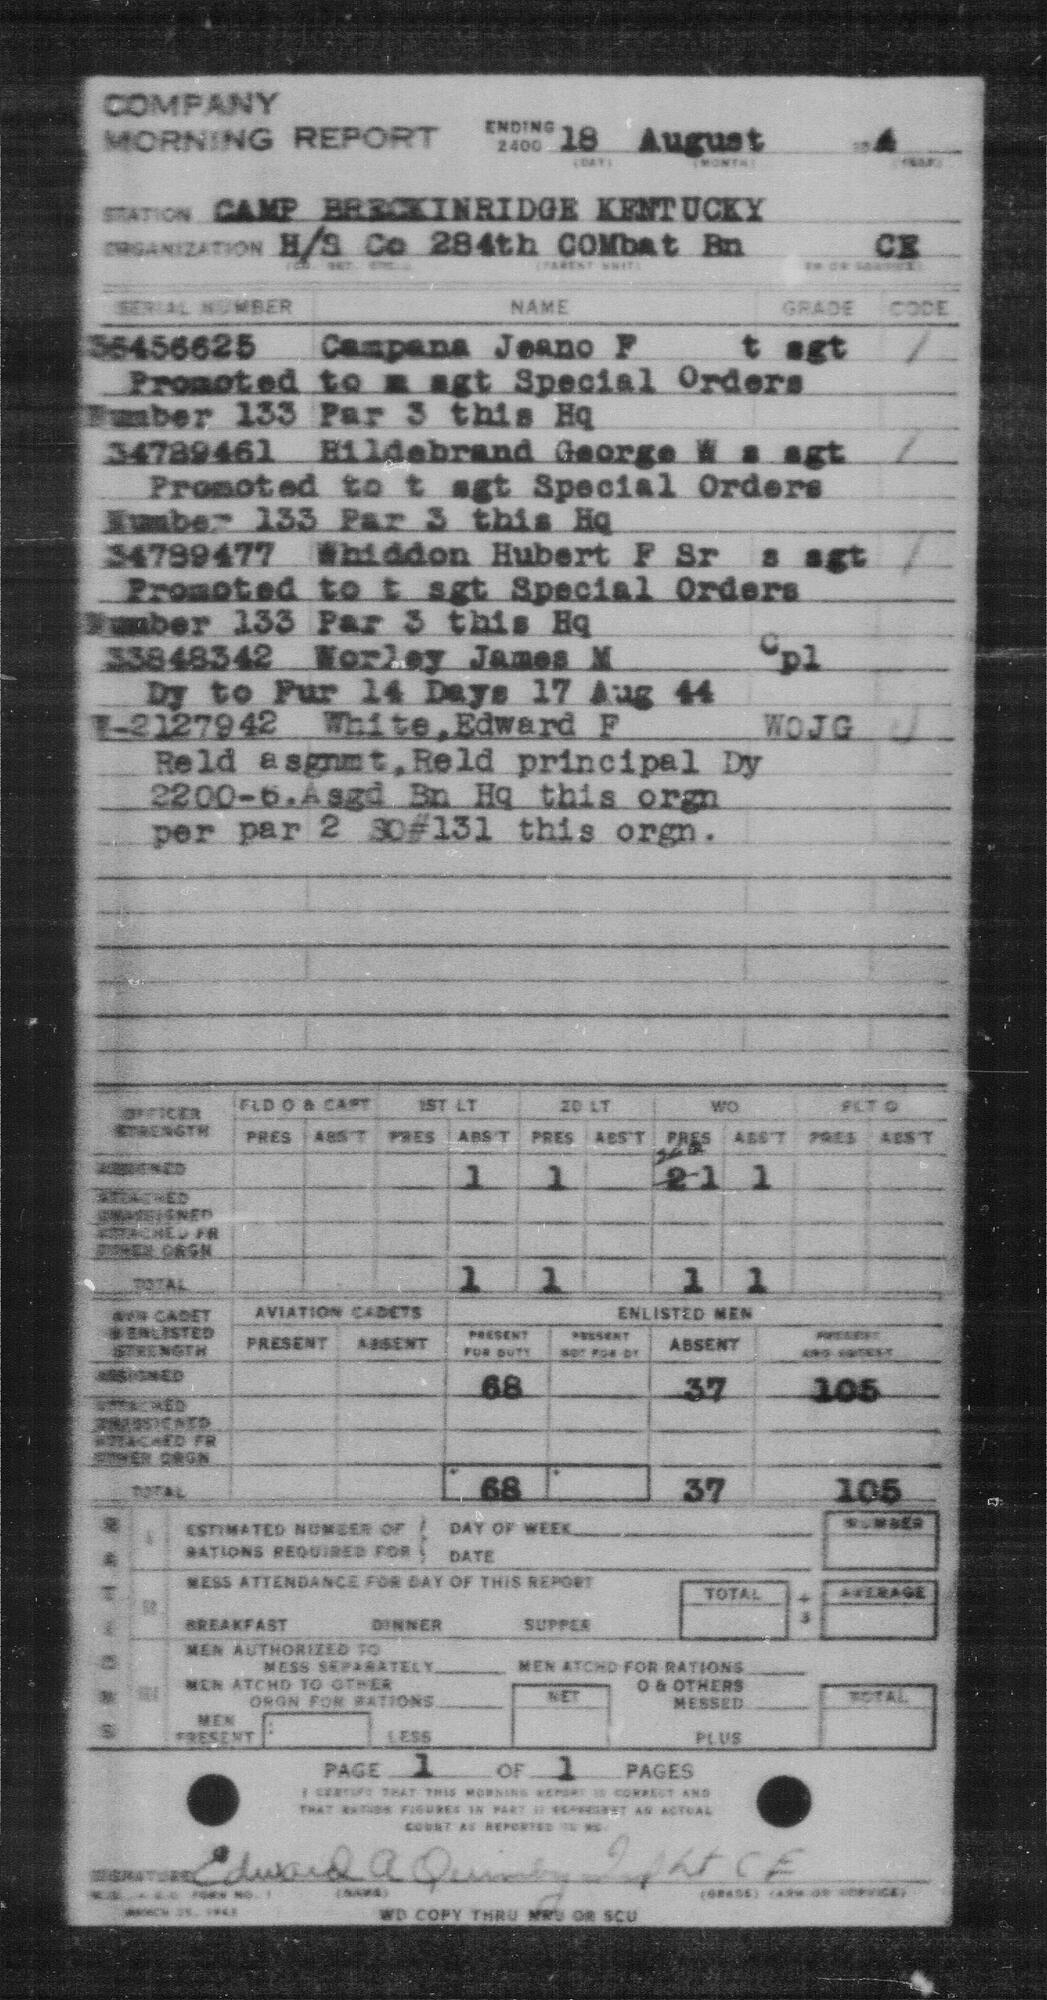 COMPANY
MORNING REPORT ENDING 2400 18 August 4
(DAY) (MONTH) (YEAR)
STATION CAMP BRECKINRIDGE KENTUCKY
ORGANIZATION H/S Co 284th COMbat Bn CE
(PARENT UNIT)
SERIAL NUMBER NAME GRADE CODE
36456625 Campana Jeano F t sgt /
Promoted to m sgt Special Orders
Number 133 Par 3 this Hq
34789461 Hildebrand George W s sgt /
Promoted to t sgt Special Orders
Number 133 Par 3 this Hq
34789477 Whiddon Hubert F Sr s sgt /
Promoted to t sgt Special Orders
Number 133 Par 3 this Hq
33848342 Worley James M Cpl
Dy to Fur 14 Days 17 Aug 44
W-2127942 White,Edward F WOJG
Reld asgnmt,Reld principal Dy
2200-6.Asgd Bn Hq this orgn
per par 2 SO#131 this orgn.
OFFICER STRENGTH FLD O & CAPT 1ST LT 2D LT WO FLT O
PRES ABS'T PRES ABS'T PRES ABS'T PRES ABS'T PRES ABS'T
ASSIGNED 1 1 2 1 1
ATTACHED
UNASSIGNED
ATTACHED FR
OTHER ORGN
TOTAL 1 1 1 1
AVN CADET & ENLISTED STRENGTH AVIATION CADETS ENLISTED MEN
PRESENT ABSENT PRESENT FOR DUTY PRESENT NOT FOR DY ABSENT PRESENT AND ABSENT
ASSIGNED 68 37 105
ATTACHED
UNASSIGNED
ATTACHED FR
OTHER ORGN
TOTAL 68 37 105
RATIONS
ESTIMATED NUMBER OF DAY OF WEEK NUMBER
RATIONS REQUIRED FOR DATE
MESS ATTENDANCE FOR DAY OF THIS REPORT TOTAL ÷ 3 AVERAGE
BREAKFAST DINNER SUPPER
MEN AUTHORIZED TO
MESS SEPARATELY MEN ATCHD FOR RATIONS
MEN ATCHD TO OTHER
ORGN FOR RATIONS NET O & OTHERS MESSED TOTAL
MEN PRESENT LESS PLUS
PAGE 1 OF 1 PAGES
I CERTIFY THAT THIS MORNING REPORT IS CORRECT AND
THAT RATION FIGURES IN PART II REPRESENT AN ACTUAL
COUNT AS REPORTED TO ME.
SIGNATURE Edward A Quimby Lt CE
FORM NO. 1 (NAME) (GRADE) (ARM OR SERVICE)
MARCH 25, 1943
WD COPY THRU MRU OR SCU